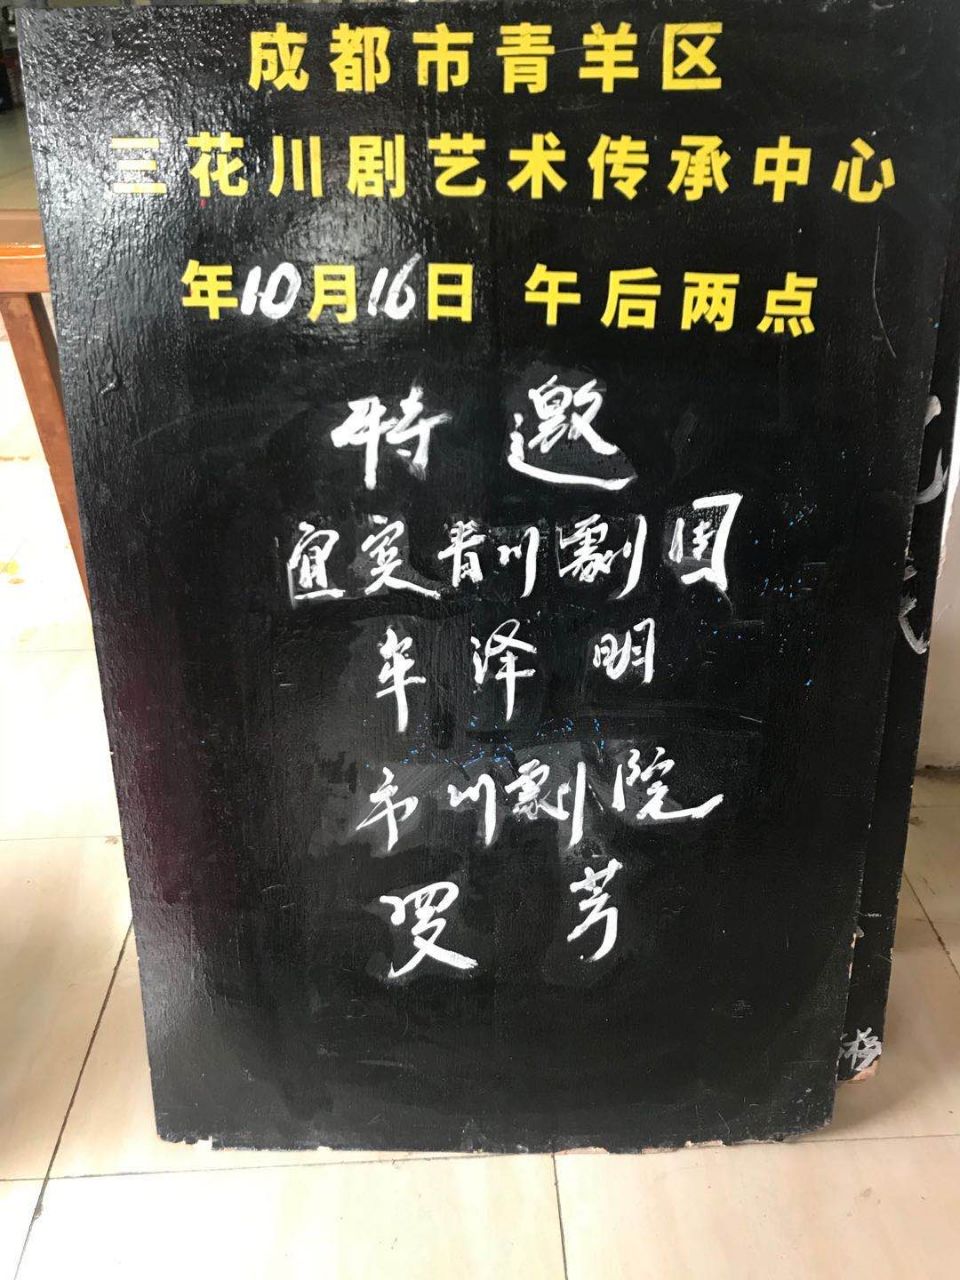 成都市青羊区
三花川剧艺术传承中心
年10月16日 午后两点
特邀
宜宾青川劇团
牟泽明
市川劇院
罗芳